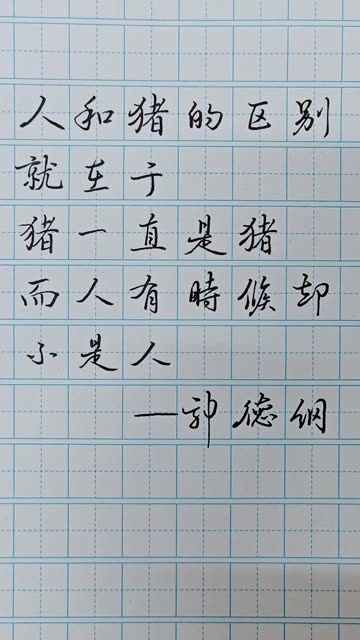 人和猪的区别
就在于
猪一直是猪
而人有時候却
不是人
——郭德纲